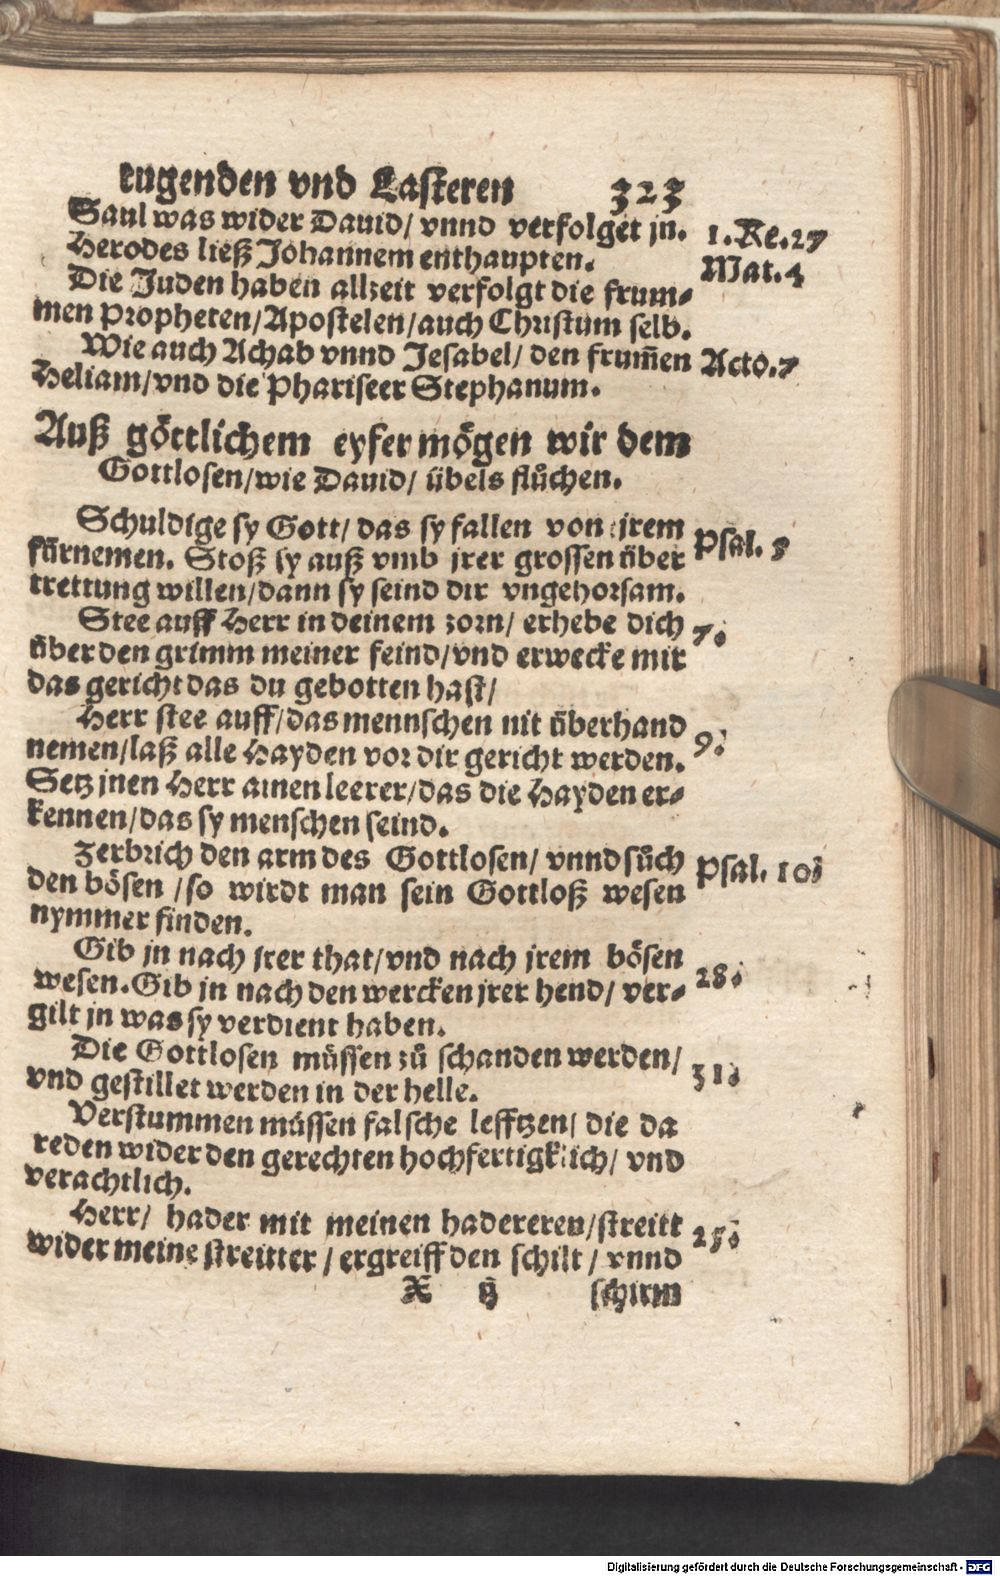 tugenden vnd Lasteren 323
Saul was wider Dauid/ vnnd verfolget jn. 1. Re. 27
Herodes ließ Johannem enthaupten. Mat. 4
Die Juden haben allzeit verfolgt die frum⸗
men Propheten/Apostelen/auch Christum selb.
Wie auch Achab vnnd Jesabel/ den frum̄en Acto. 7
Heliam/vnd die Phariseer Stephanum.
Auß göttlichem eyfer mögen wir dem
Gottlosen/wie Dauid/ übels flůchen.
Schuldige sy Gott/ das sy fallen von jrem Psal. 5
fürnemen. Stoß sy auß vmb jrer grossen über
trettung willen/dann sy seind dir vngehorsam.
Stee auff Herr in deinem zorn/ erhebe dich 7.
über den grimm meiner feind/vnd erwecke mir
das gericht das du gebotten hast/
Herr stee auff/das mennschen nit überhand 9.
nemen/laß alle Hayden vor dir gericht werden.
Setz jnen Herr ainen leerer/das die Hayden er⸗
kennen/das sy menschen seind.
Zerbrich den arm des Gottlosen/ vnnd sůch Psal. 10.
den bösen /so wirdt man sein Gottloß wesen
nymmer finden.
Gib jn nach jrer that/vnd nach jrem bösen 28.
wesen. Gib jn nach den wercken jrer hend/ ver⸗
gilt jn was sy verdient haben.
Die Gottlosen müssen zů schanden werden/ 31.
vnd gestillet werden in der helle.
Verstummen müssen falsche lefftzen/ die da
reden wider den gerechten hochfertigklich/ vnd
verachtlich.
Herr/ hader mit meinen hadereren/streitt 25.
wider meine streitter / ergreiff den schilt/ vnnd
X ij schirm
Digitalisierung gefördert durch die Deutsche Forschungsgemeinschaft - DFG